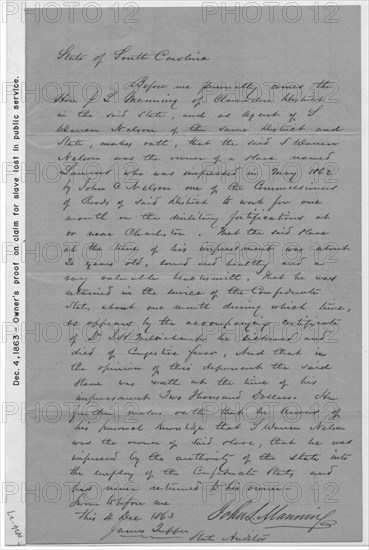 State of South Carolina
Before me personally comes the
Hon J. L. Manning of Clarendon District
in the said State, and as Agent of S
Warren Nelson of the same District and
State, makes oath, that the said S Warren
Nelson was the owner of a slave named
who was impressed in May 1862
by John C Nelson one of the Commissioners
of Roads of said District to work for one
month on the military fortifications at
or near Charleston. That the said slave
at the time of his impressment was about
years old, sound and healthy and a
very valuable blacksmith. That he was
retained in the service of the Confederate
State, about one month during which time,
as appears by the accompanying certificate
of Dr he sickened and
died of Congestive fever, And that in
the opinion of this deponent the said
slave was worth at the time of his
impressment Two Thousand Dollars. He
further makes oath that he knows of
his personal knowledge that S Warren Nelson
was the owner of said slave, that he was
impressed by the authority of the state into
the employ of the Confederate States and
has never returned to his owner
Sworn to before me
This 4 Dec 1863
John L. Manning
James Tupper
State Auditor
Dec. 4, 1863 - Owner's proof on claim for slave lost in public service.
PHOTO12